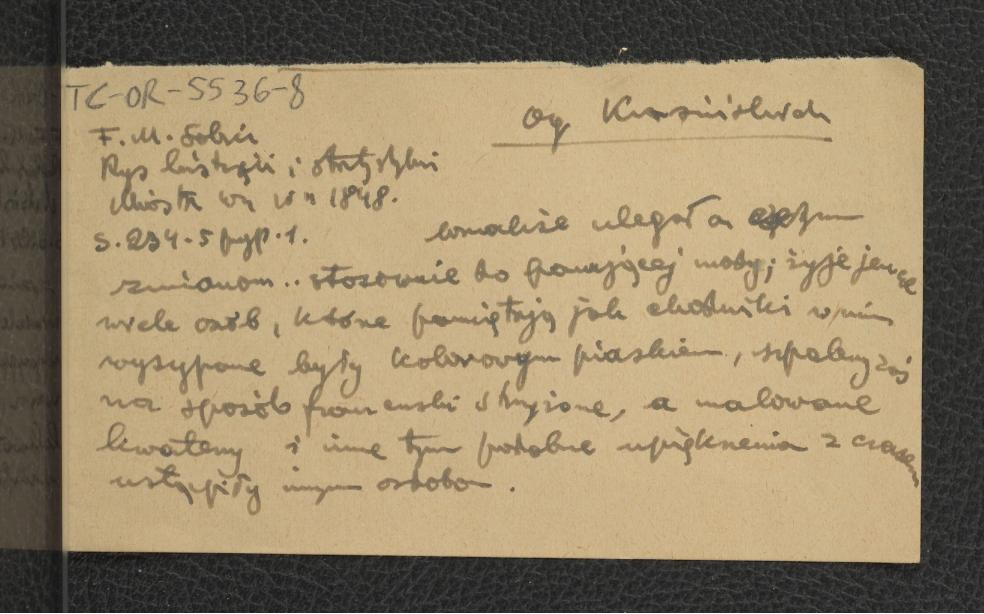 TC-OR-5536-8
Og Krasińskich
F. M. Sobie
Rys historyi i statystyki
Miasta W 1848.
s. 234-5 przyp. 1.
ulegał on
zmianom.. stosownie do panującej mody; żyje jeszcze
wiele osób, które pamiętają jak chodniki w nim
wysypane były kolorowym piaskiem, szpalery zaś
na sposób francuski strzyżone, a malowane
kwatery i inne tym podobne upięknienia z czasem
ustąpiły innym ozdobom.